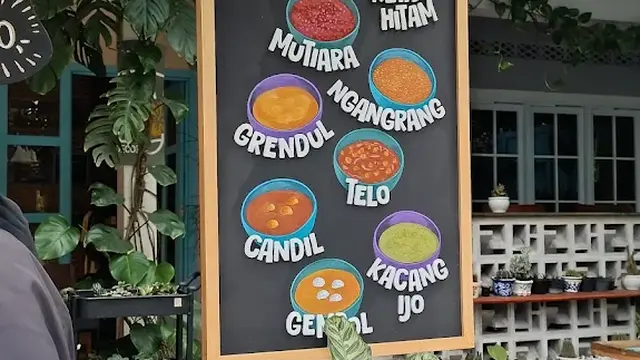 HITAM
MUTIARA
NGANGRANG
GRENDUL
TELO
CANDIL
KACANG
IJO